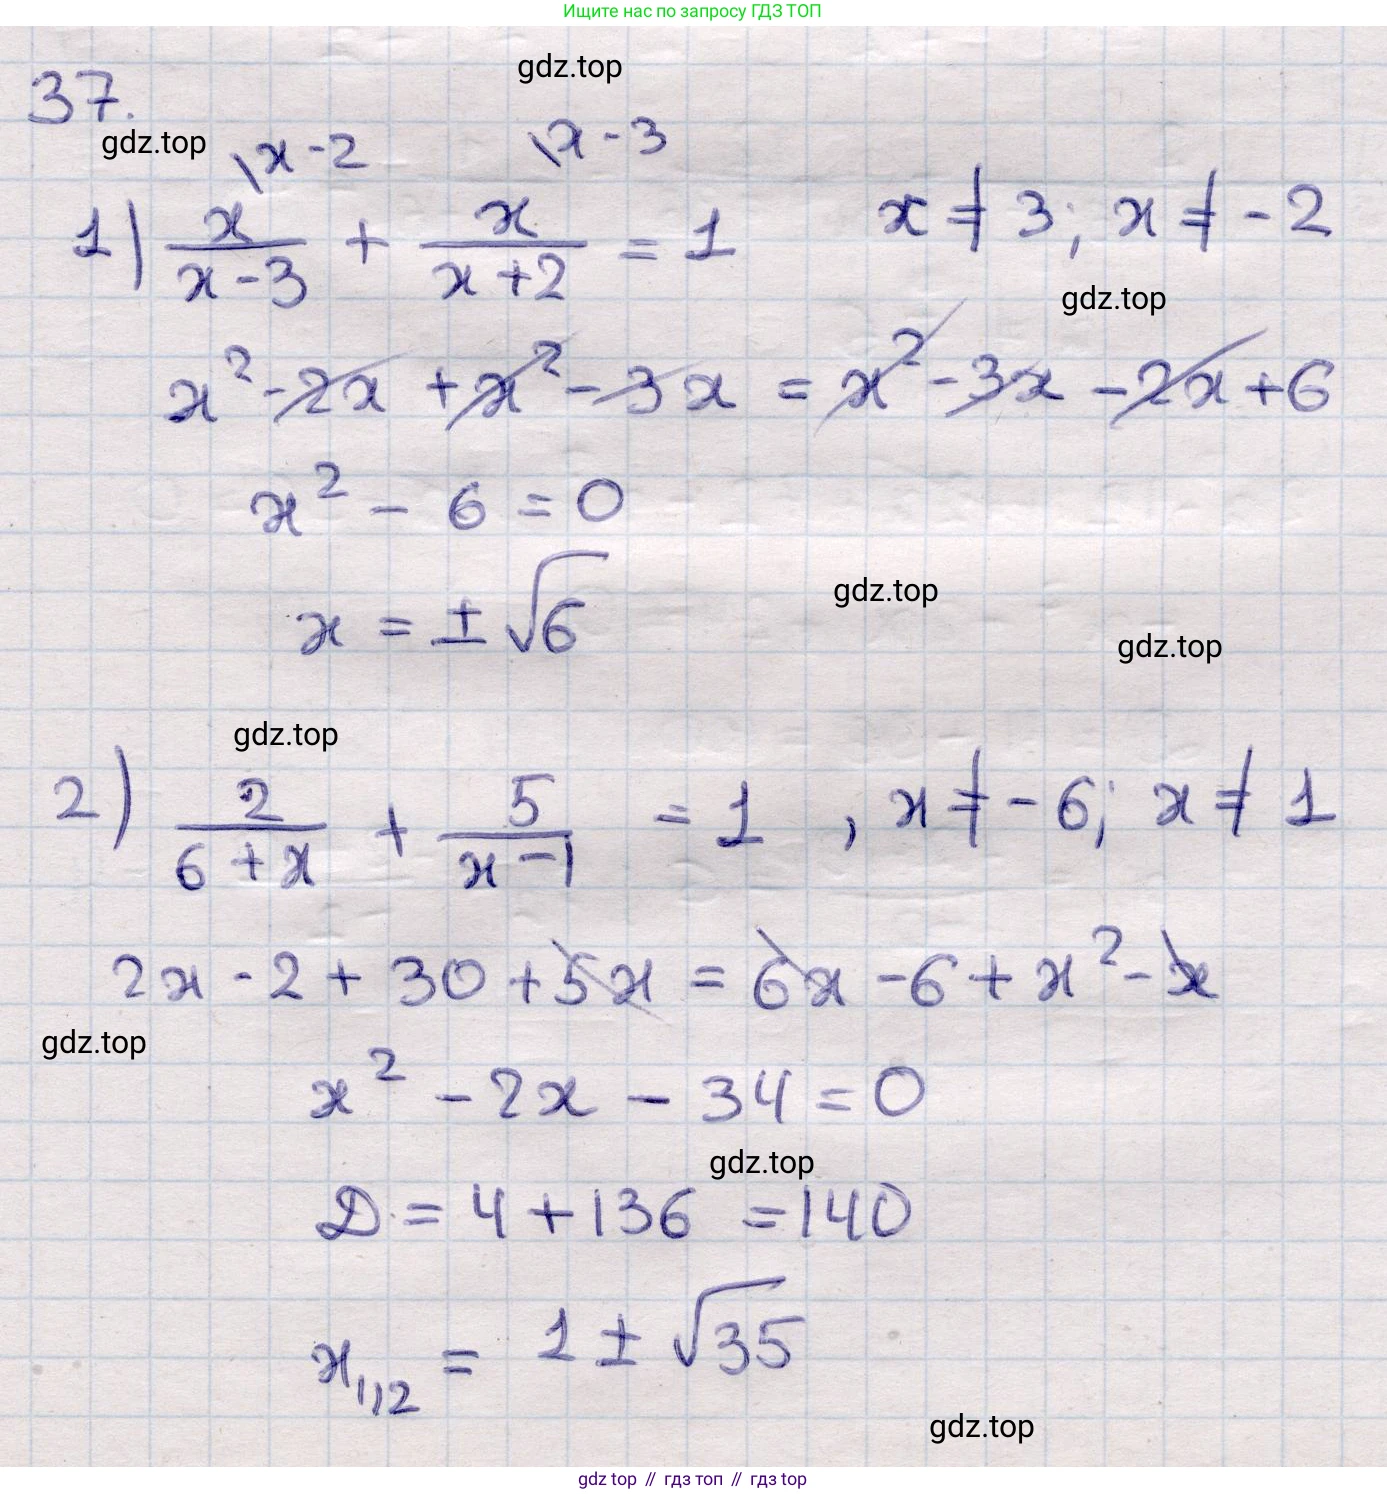 Ищите нас по запросу ГДЗ ТОП
gdz.top
37.
gdz.top
\x-2 \x-3
1) x/(x-3) + x/(x+2) = 1 x ≠ 3; x ≠ -2
gdz.top
x² - 2x + x² - 3x = x² - 3x - 2x + 6
x² - 6 = 0
gdz.top
x = ± √6
gdz.top
gdz.top
2) 2/(6+x) + 5/(x-1) = 1 , x ≠ -6; x ≠ 1
2x - 2 + 30 + 5x = 6x - 6 + x² - x
gdz.top
x² - 2x - 34 = 0
gdz.top
D = 4 + 136 = 140
x₁,₂ = 1 ± √35
gdz.top
gdz top // гдз топ // gdz top